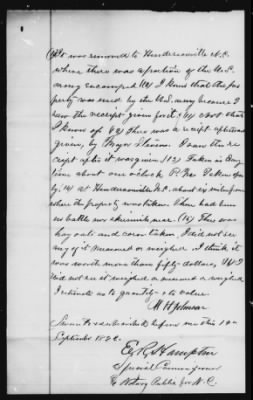 It was removed to Hendersonville N.C.
where there was a portion of the U.S.
army encamped (10) I know that the pro
perty was used by the U.S. army because I
saw the receipt given for it. (11) Not that
I know of (12) There was a receipt
given, by Major I saw the re
ceipt after it was given (13) Taken in day
time about one o'clock P.M. Taken open
ly. (14) at Hendersonville N.C. about six miles from
where the property was taken. There had been
no battle nor skirmish near. (15) There was
hay oats and corn taken. I did not see
any of it measured or weighed. I think it
was worth more than fifty dollars. (16) I
did not see it weighed or measured or weighed
I estimate as to quantity & to value.
M H Johnson
Sworn to & subscribed before me this 19th
September 1872.
E. R. Hampton
Special Commissioner
& Notary Public for N.C.